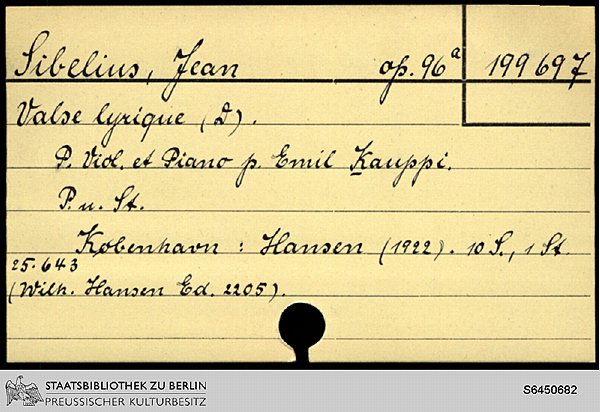 Sibelius, Jean op. 96a 199697
Valse lyrique (D).
P. Viol. et Piano p. Emil Kauppi.
P. u. St.
København : Hansen (1922). 10 S., 1 St.
25.643
(Wilh. Hansen Ed. 2205).
STAATSBIBLIOTHEK ZU BERLIN
PREUSSISCHER KULTURBESITZ
S6450682